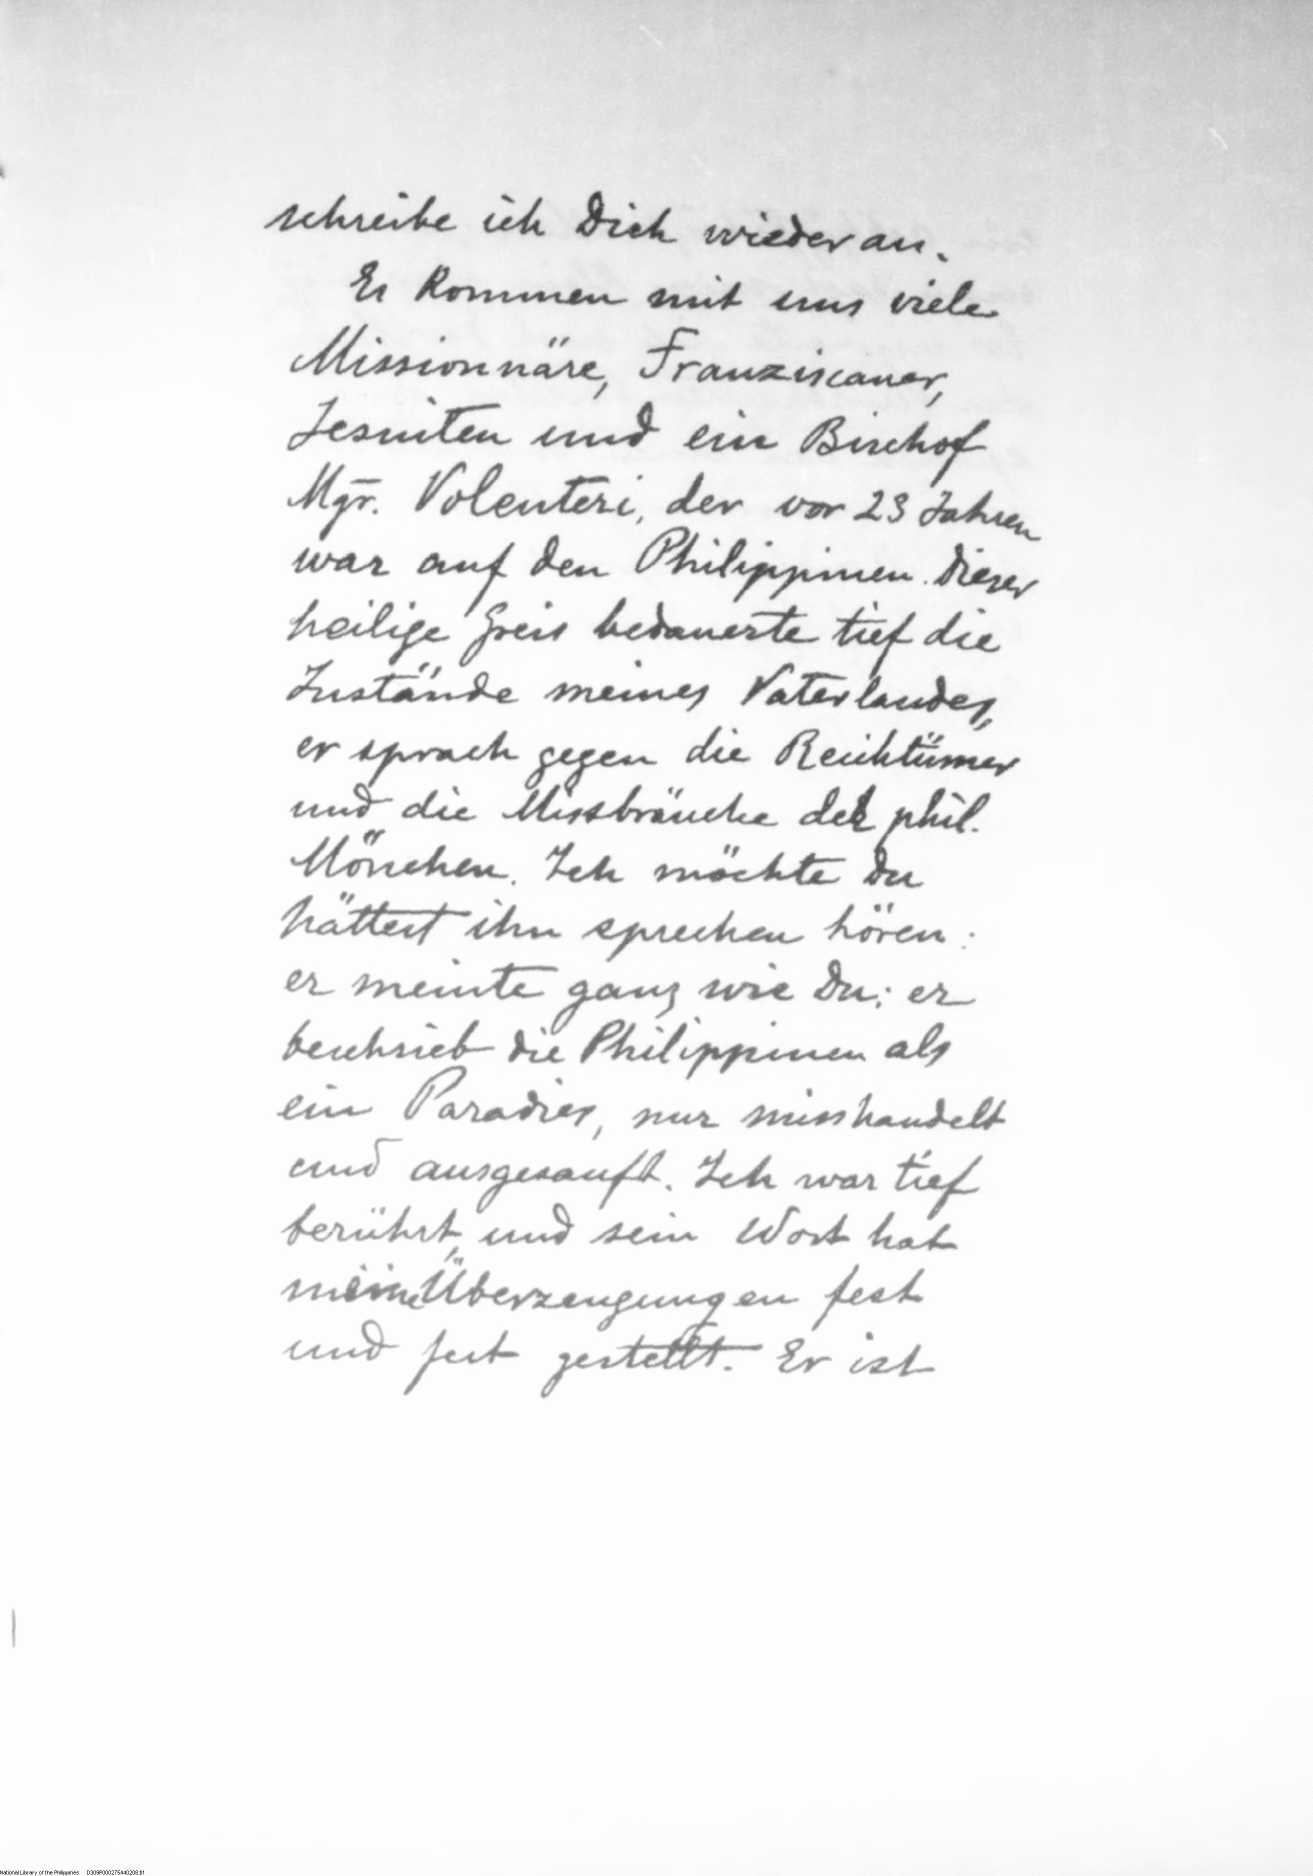 schreibe ich Dich wieder an.
Es kommen mit uns viele
Missionnäre, Franziscaner,
Jesuiten und ein Bischof
Mgr. Volenteri, der vor 23 Jahren
war auf den Philippinen. Dieser
heilige Greis bedauerte tief die
Zustände meines Vaterlandes,
er sprach gegen die Reichtümer
und die Missbräuche der phil.
Mönchen. Ich möchte Du
hättest ihn sprechen hören:
er meinte ganz wie Du; er
beschrieb die Philippinen als
ein Paradies, nur misshandelt
und ausgesauft. Ich war tief
berührt, und sein Wort hat
meine Überzeugungen fest
und fest gestellt. Er ist
National Library of the Philippines